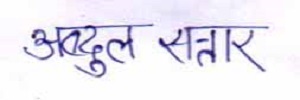 अब्दुल सत्तार